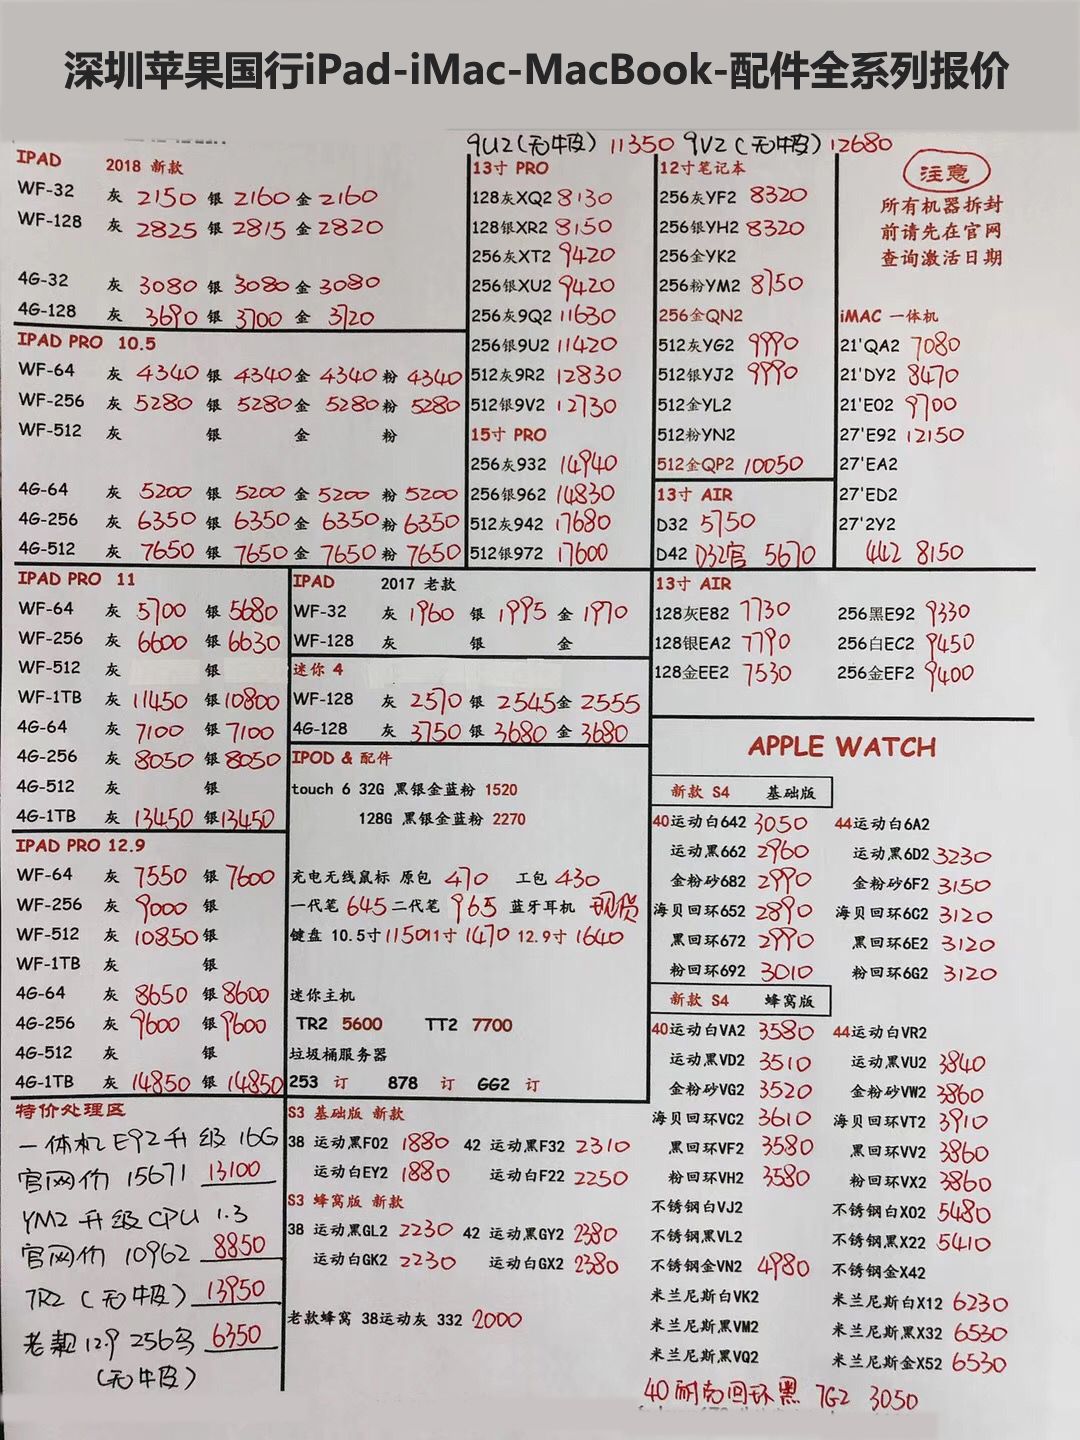 深圳苹果国行iPad-iMac-MacBook-配件全系列报价
9U2(无牛皮) 11350 9V2(无牛皮) 12680
IPAD 2018 新款
WF-32 灰 2150 银 2160 金 2160
WF-128 灰 2825 银 2815 金 2820
4G-32 灰 3080 银 3080 金 3080
4G-128 灰 3690 银 3700 金 3720
IPAD PRO 10.5
WF-64 灰 4340 银 4340 金 4340 粉 4340
WF-256 灰 5280 银 5280 金 5280 粉 5280
WF-512 灰 银 金 粉
4G-64 灰 5200 银 5200 金 5200 粉 5200
4G-256 灰 6350 银 6350 金 6350 粉 6350
4G-512 灰 7650 银 7650 金 7650 粉 7650
13寸 PRO
128灰XQ2 8130
128银XR2 8150
256灰XT2 9420
256银XU2 9420
256灰9Q2 11630
256银9U2 11420
512灰9R2 12830
512银9V2 12730
15寸 PRO
256灰932 14940
256银962 14830
512灰942 17680
512银972 17600
12寸笔记本
256灰YF2 8320
256银YH2 8320
256金YK2
256粉YM2 8750
256金QN2
512灰YG2 9990
512银YJ2 9990
512金YL2
512粉YN2
512金QP2 10050
13寸 AIR
D32 5750
D42 D32官 5670
注意
所有机器拆封
前请先在官网
查询激活日期
iMAC 一体机
21'QA2 7080
21'DY2 8470
21'E02 9700
27'E92 12150
27'EA2
27'ED2
27'2Y2
442 8150
IPAD PRO 11
WF-64 灰 5700 银 5680
WF-256 灰 6600 银 6630
WF-512 灰 银
WF-1TB 灰 11450 银 10800
4G-64 灰 7100 银 7100
4G-256 灰 8050 银 8050
4G-512 灰 银
4G-1TB 灰 13450 银 13450
IPAD PRO 12.9
WF-64 灰 7550 银 7600
WF-256 灰 9000 银
WF-512 灰 10850 银
WF-1TB 灰 银
4G-64 灰 8650 银 8600
4G-256 灰 9600 银 9600
4G-512 灰 银
4G-1TB 灰 14850 银 14850
IPAD 2017 老款
WF-32 灰 1960 银 1995 金 1970
WF-128 灰 银 金
迷你 4
WF-128 灰 2570 银 2545 金 2555
4G-128 灰 3750 银 3680 金 3680
IPOD & 配件
touch 6 32G 黑银金蓝粉 1520
128G 黑银金蓝粉 2270
充电无线鼠标 原包 470 工包 430
一代笔 645 二代笔 965 蓝牙耳机 现货
键盘 10.5寸 1150 11寸 1470 12.9寸 1640
迷你主机
TR2 5600 TT2 7700
垃圾桶服务器
253 订 878 订 GG2 订
13寸 AIR
128灰E82 7730 256黑E92 9330
128银EA2 7790 256白EC2 9450
128金EE2 7530 256金EF2 9400
APPLE WATCH
新款 S4 基础版
40运动白642 3050 44运动白6A2
运动黑662 2960 运动黑6D2 3230
金粉砂682 2990 金粉砂6F2 3150
海贝回环652 2890 海贝回环6C2 3120
黑回环672 2990 黑回环6E2 3120
粉回环692 3010 粉回环6G2 3120
新款 S4 蜂窝版
40运动白VA2 3580 44运动白VR2
运动黑VD2 3510 运动黑VU2 3840
金粉砂VG2 3520 金粉砂VW2 3860
海贝回环VC2 3610 海贝回环VT2 3910
黑回环VF2 3580 黑回环VV2 3860
粉回环VH2 3580 粉回环VX2 3860
不锈钢白VJ2 不锈钢白X02 5480
不锈钢黑VL2 不锈钢黑X22 5410
不锈钢金VN2 4980 不锈钢金X42
米兰尼斯白VK2 米兰尼斯白X12 6230
米兰尼斯黑VM2 米兰尼斯黑X32 6530
米兰尼斯黑VQ2 米兰尼斯金X52 6530
40 耐克回环黑 7G2 3050
特价处理区
一体机E92升级16G
官网价 15671 13100
YM2升级CPU 1.3
官网价 10962 8850
7R2(无牛皮) 13950
老款12.9 256 6350
(无牛皮)
S3 基础版 新款
38 运动黑F02 1880 42 运动黑F32 2310
运动白EY2 1880 运动白F22 2250
S3 蜂窝版 新款
38 运动黑GL2 2230 42 运动黑GY2 2380
运动白GK2 2230 运动白GX2 2380
老款蜂窝 38运动灰 332 2000